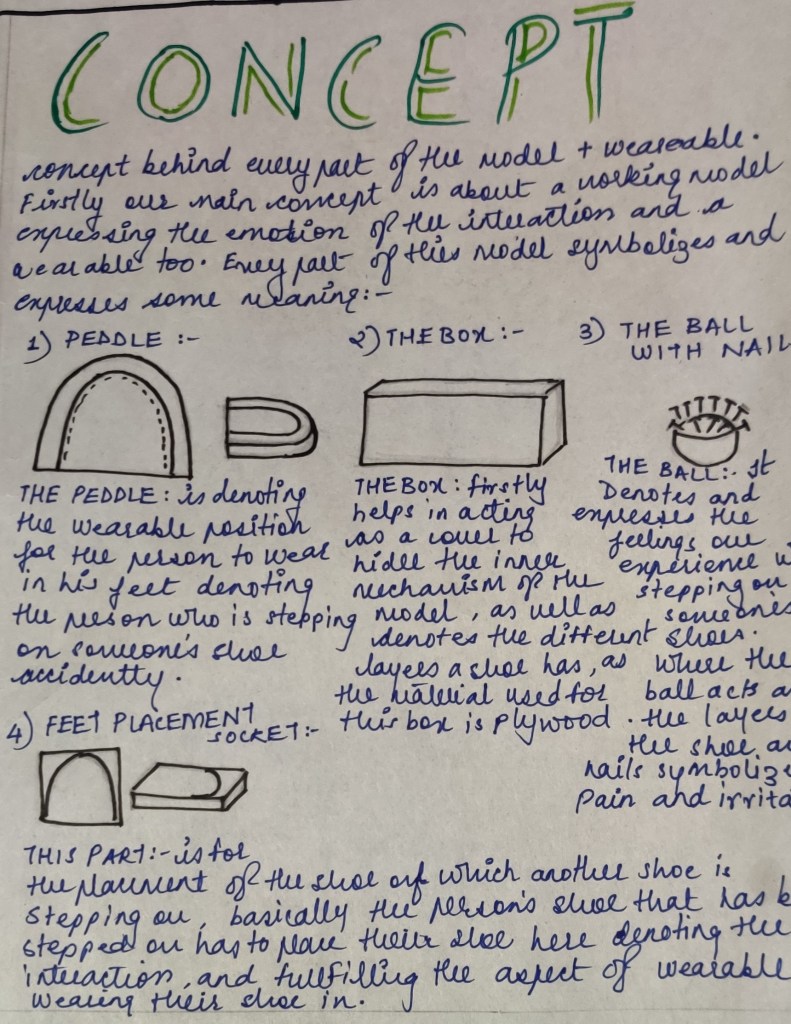 CONCEPT
concept behind every part of the model + wearable.
Firstly our main concept is about a working model
expressing the emotion of the interaction and a
wearable too. Every part of this model symbolizes and
expresses some meaning:-
1) PEDDLE :-
THE PEDDLE: is denoting
the wearable position
for the person to wear
in his feet denoting
the person who is stepping
on someone's shoe
accidently.
2) THE BOX :-
THE BOX: firstly
helps in acting
as a cover to
hidee the inner
mechanism of the
model, as well as
denotes the different
layers a shoe has, as
the material used for
this box is plywood.
3) THE BALL
WITH NAIL
THE BALL:- It
Denotes and
expresses the
feelings our
experience
stepping on
someone's
shoes.
where the
ball acts
the layers
the shoe
nails symbolize
Pain and
4) FEET PLACEMENT
SOCKET:-
THIS PART:- is for
the placement of the shoe on which another shoe is
stepping on, basically the person's shoe that has
stepped on has to place their shoe here denoting the
interaction, and fullfilling the aspect of wearable
wearing their shoe in.